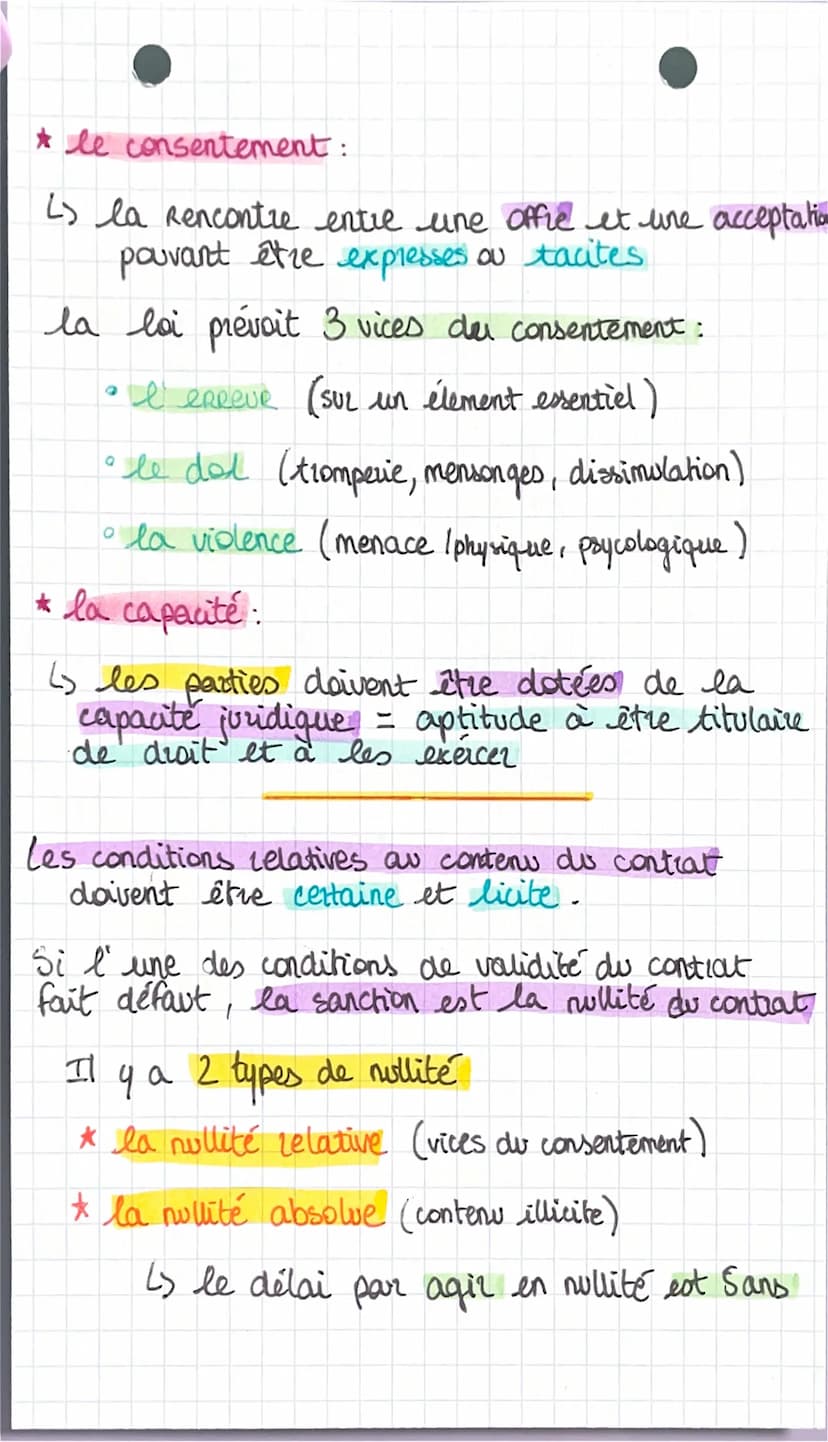 * le consentement :
↳ la Rencontre entre une offre et une acceptatio
pouvant être expresses ou tacites
la loi prévoit 3 vices du consentement :
• l'erreur (sur un élement essentiel)
° le dol (tromperie, mensonges, dissimulation)
° la violence (menace / physique, psycologique)
* la capacité :
↳ les parties doivent être dotées de la
capacité juridique = aptitude à être titulaire
de droit et à les exércer
Les conditions relatives au contenu du contrat
doivent être certaine et licite.
Si l'une des conditions de validité du contrat
fait défaut, la sanction est la nullité du contrat
Il y a 2 types de nullité
* la nullité relative (vices du consentement)
* la nullité absolue (contenu illicite)
↳ le délai par agir en nullité est 5ans